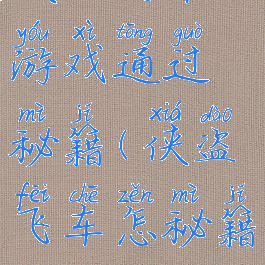 yóu xì tōng guò
游戏通过
mì jí xiá dào
秘籍(侠盗
fēi chē zěn mì jí
飞车怎秘籍